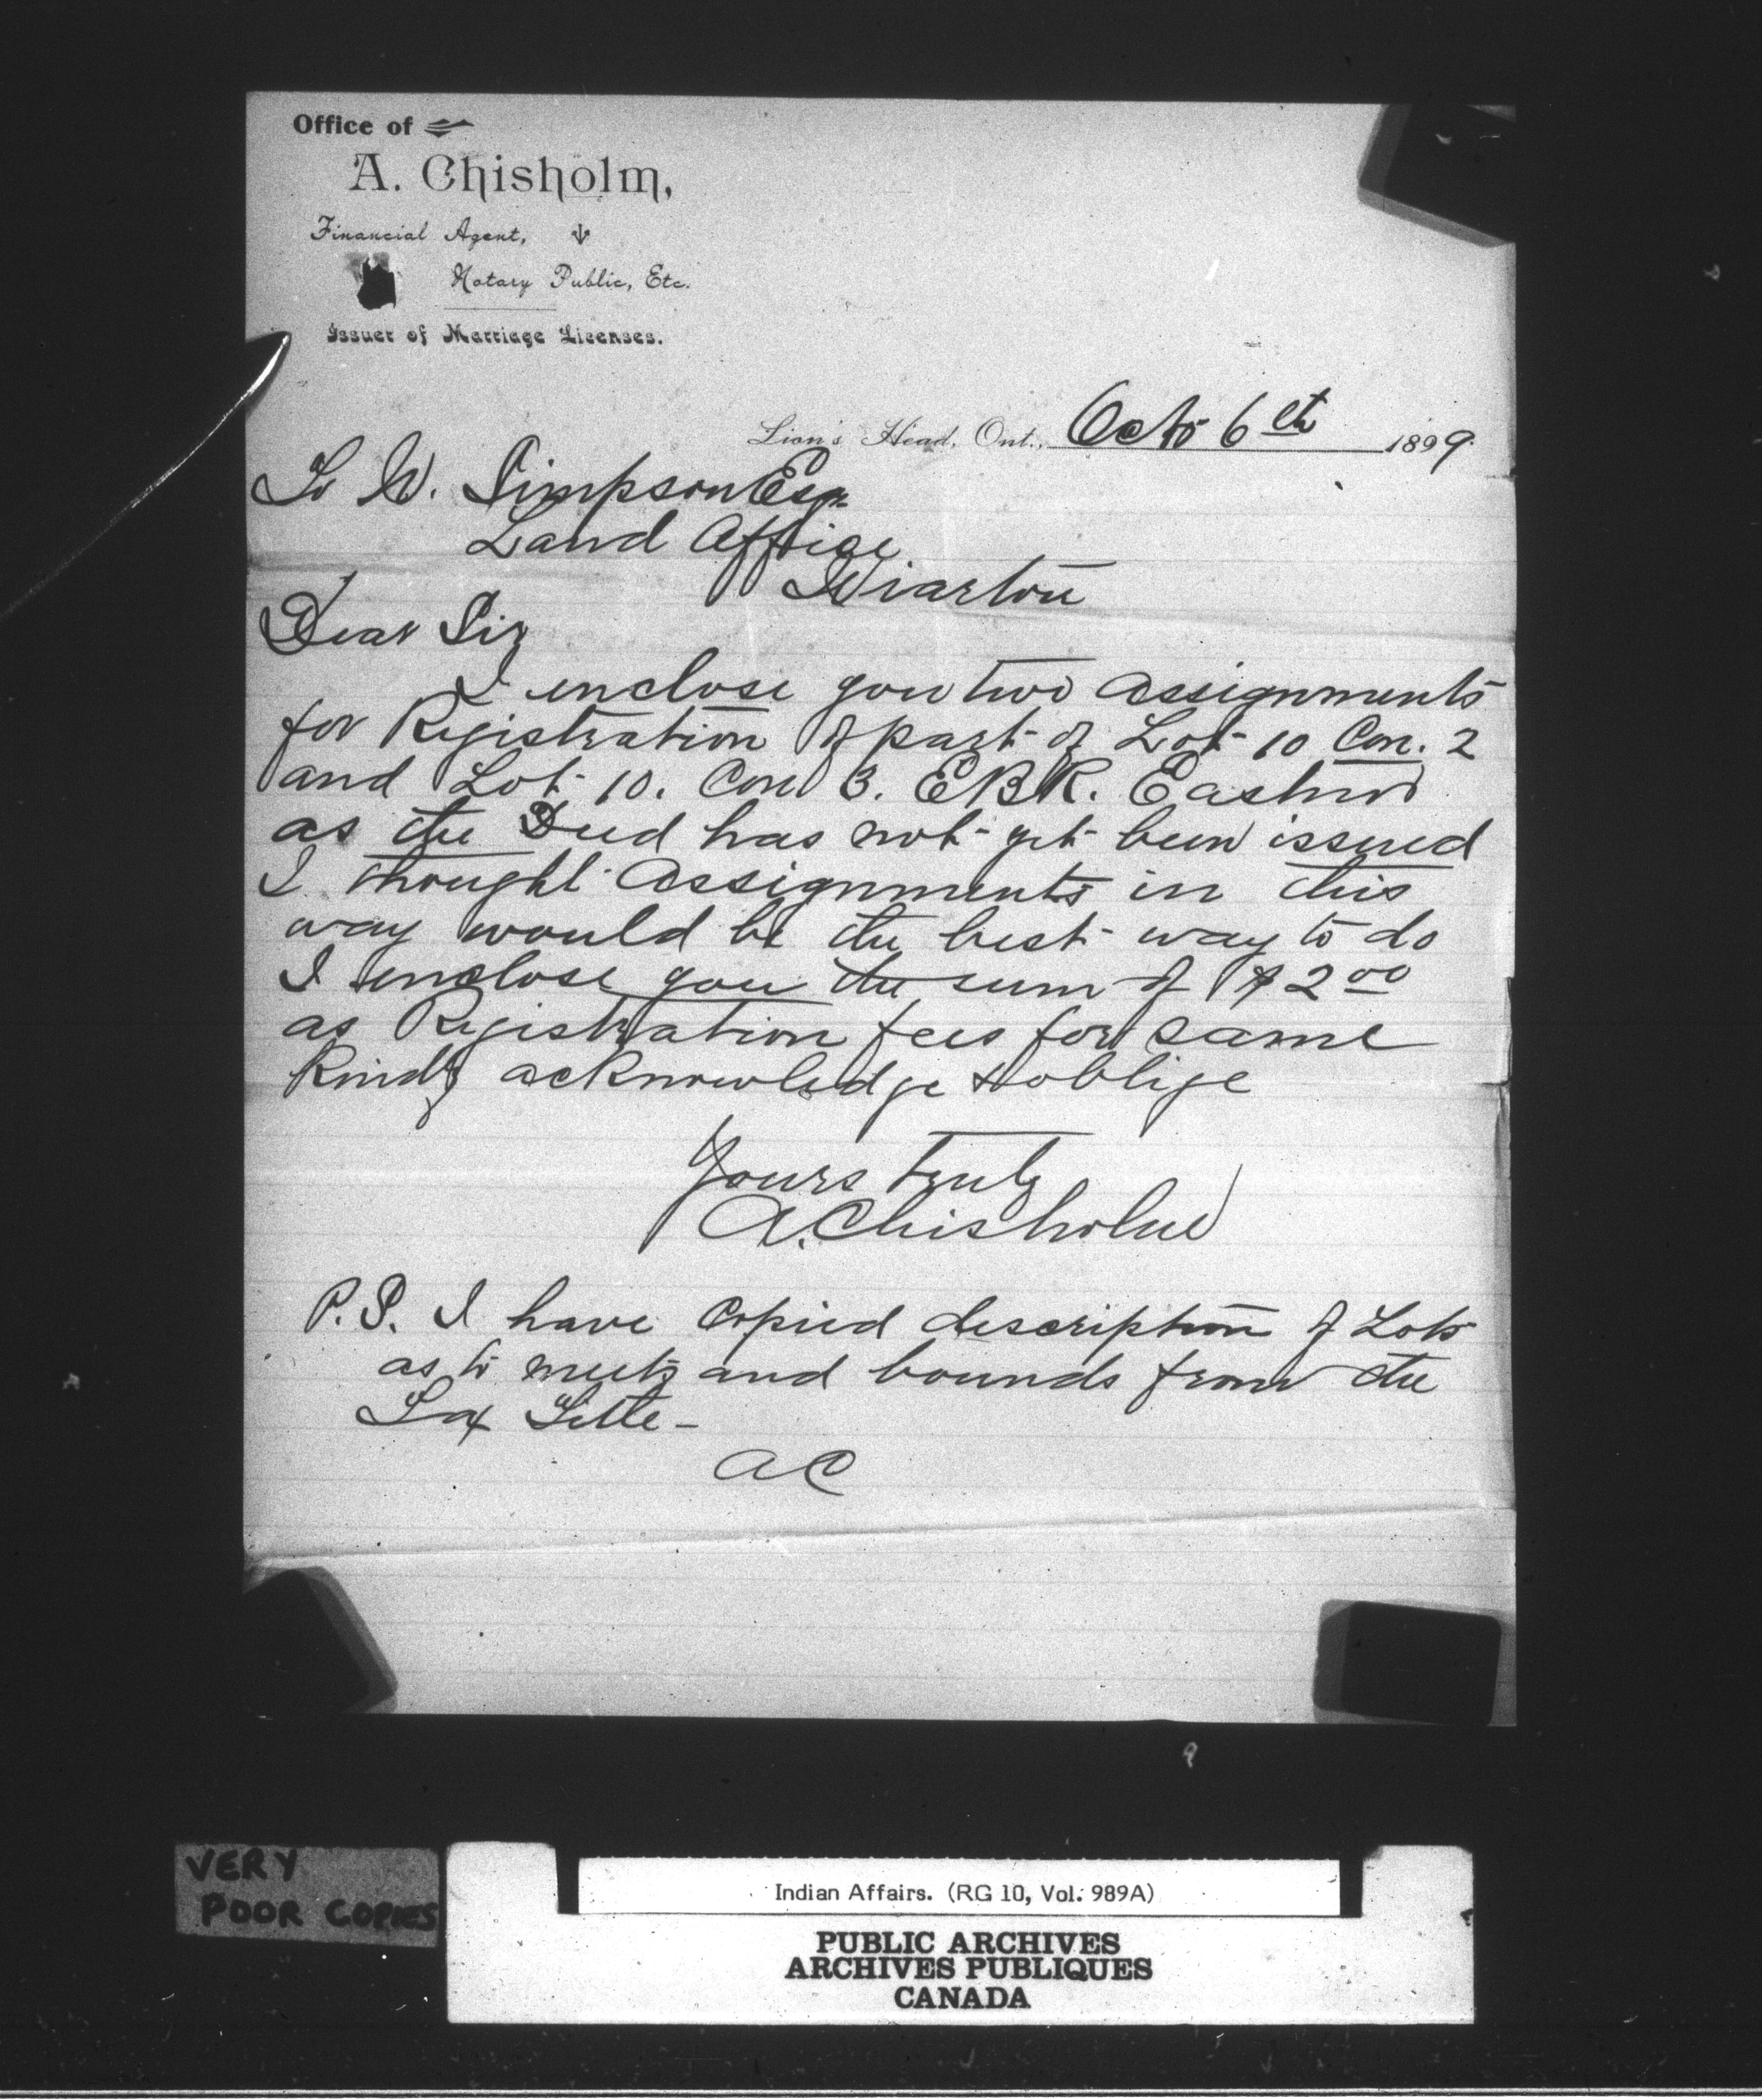 Office of
A. Chisholm,
Financial Agent,
Notary Public, Etc.
Issuer of Marriage Licenses.
Lion's Head, Ont., Octo 6th 1899.
To W. Simpson Esqr
Land Office
Wiarton
Dear Sir
I enclose you two assignments
for Registration of part of Lot 10 Con. 2
and Lot 10. Con 3. EBR. Eastnor
as the Deed has not yet been issued
I thought Assignments in this
way would be the best way to do
I enclose you the sum of $2 00
as Registration fees for same
Kindly acknowledge & oblige
Yours truly
A. Chisholm
P.S. I have Copied description of Lots
as to meets and bounds from the
Tax Title -
AC
VERY
POOR COPIES
Indian Affairs. (RG 10, Vol. 989A)
PUBLIC ARCHIVES
ARCHIVES PUBLIQUES
CANADA